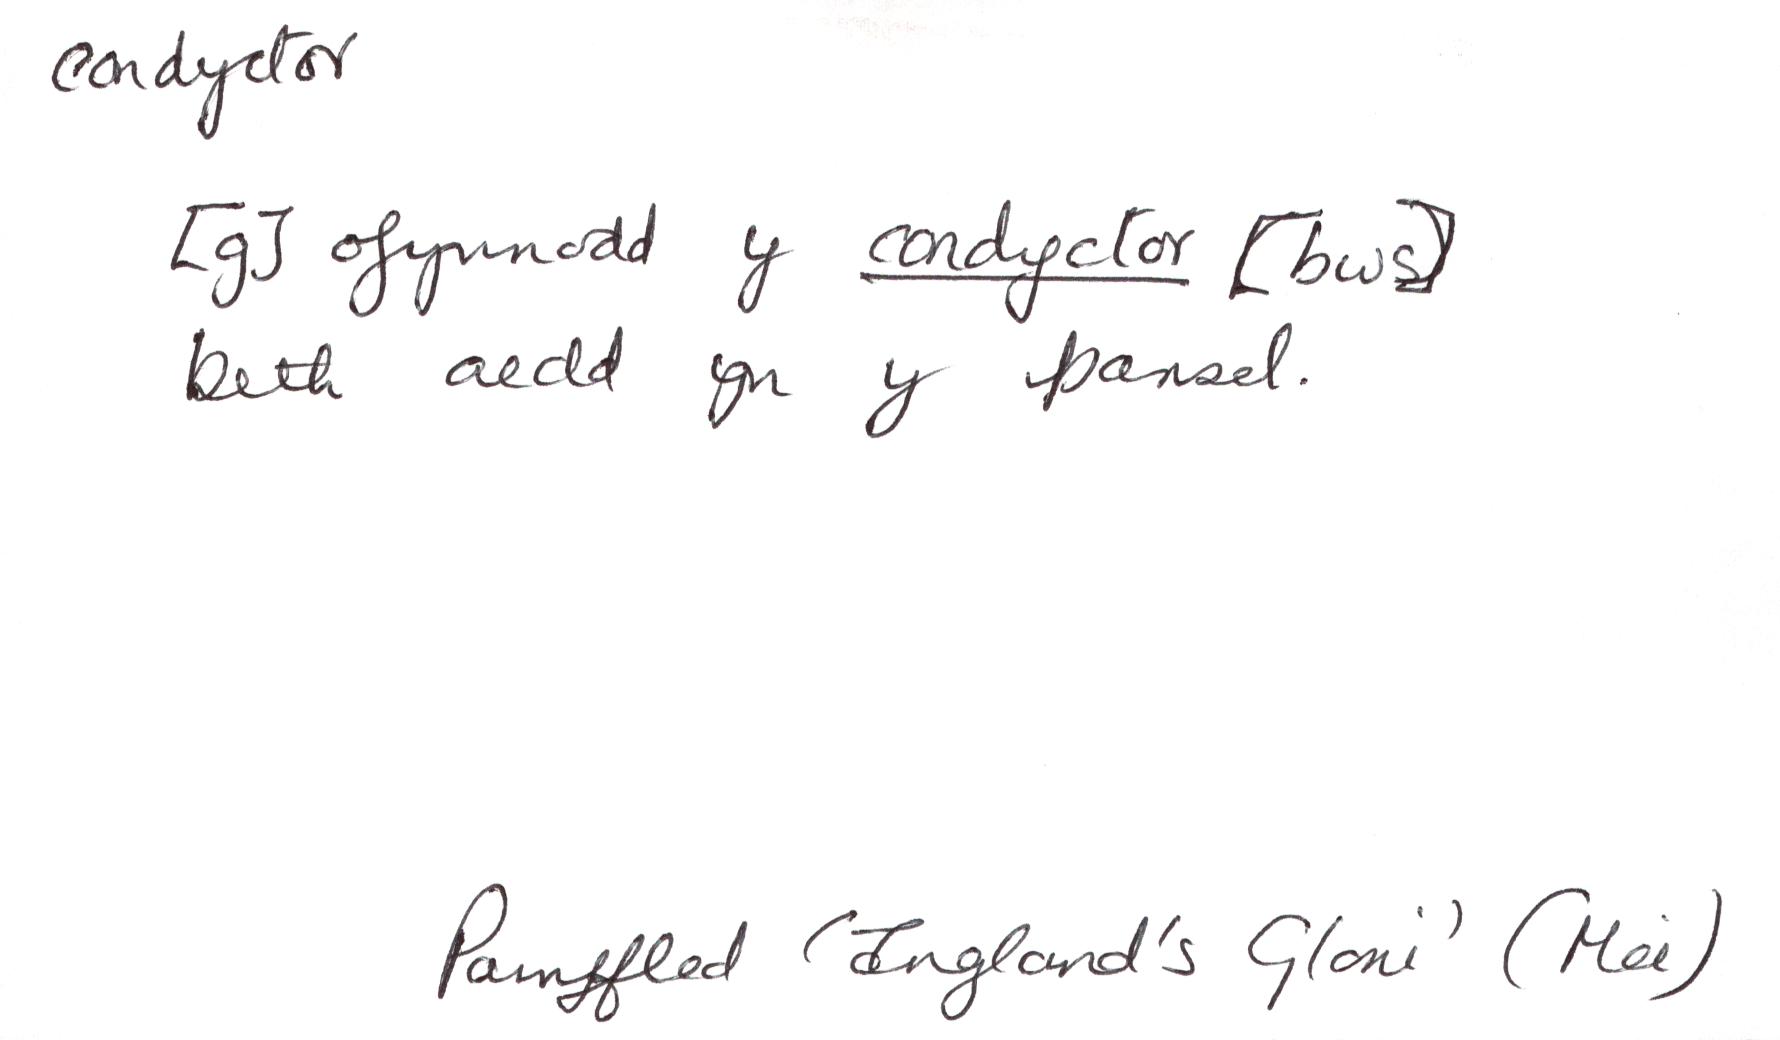 condyctor
[g] ofynnodd y condyctor [bws]
beth aedd yn y pansel.
Pamffled 'England's Gloni' (Mei)